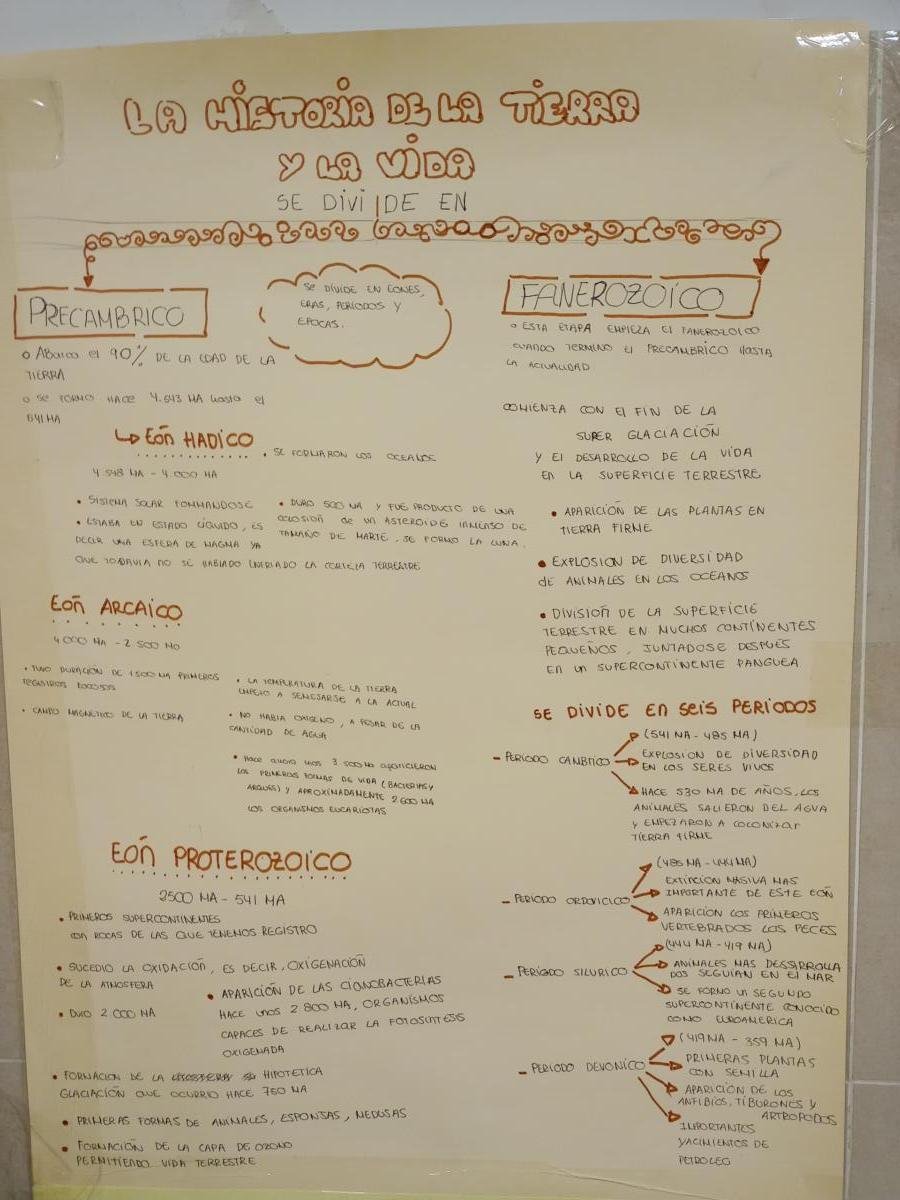 LA HISTORIA DE LA TIERRA
Y LA VIDA
SE DIVIDE EN
PRECAMBRICO
o Abarca el 90% DE LA EDAD DE LA
TIERRA
o SE FORMO HACE 4.543 MA hasta el
541 MA
SE DIVIDE EN EONES,
ERAS, PERÍODOS Y
EPOCAS.
↳ Eón HADICO
4.548 MA - 4.000 MA
• SE FORMARON LOS OCEANOS
• SISTEMA SOLAR FORMANDOSE
• ESTABA EN ESTADO LÍQUIDO, ES
DECIR UNA ESFERA DE MAGMA YA
QUE TODAVIA NO SE HABIADO ENFRIADO LA CORTEZA TERRESTRE
• DURO 500 MA Y FUE PRODUCTO DE UNA
COLOSIÓN de UN ASTEROIDE INMENSO DE
TAMAÑO DE MARTE. SE FORMO LA LUNA.
Eón ARCAICO
4000 MA - 2.500 MA
• TUVO DURACIÓN DE 1500 MA PRIMEROS
REGISTROS
• CAMPO MAGNETICO DE LA TIERRA
• LA TEMPERATURA DE LA TIERRA
EMPEZO A SEMEJARSE A LA ACTUAL
• NO HABIA OXIGENO, A PESAR DE LA
CANTIDAD DE AGUA
• Hace unos 3.500 MA aparicieron
LAS PRIMEROS FORMAS DE VIDA (BACTERIAS Y
ARQUEAS) Y APROXIMADAMENTE 2600 MA
LOS ORGANISMOS EUCARIOTAS
Eón PROTEROZOICO
2500 MA - 541 MA
• PRIMEROS SUPERCONTINENTES
CON ROCAS DE LAS QUE TENEMOS REGISTRO
• SUCEDIO LA OXIDACIÓN, ES DECIR, OXIGENACIÓN
DE LA ATMOSFERA
• DURO 2000 MA
• APARICIÓN DE LAS CIANOBACTERIAS
HACE UNOS 2.800 MA, ORGANISMOS
CAPACES DE REALIZAR LA FOTOSINTESIS
OXIGENADA
• FORMACION DE LA HIPOTETICA
GLACIACIÓN QUE OCURRIO HACE 750 MA
• PRIMERAS FORMAS DE ANIMALES, ESPONSAS, MEDUSAS
• FORMACIÓN DE LA CAPA DE OZONO
PERMITIENDO VIDA TERRESTRE
FANEROZOICO
o ESTA ETAPA EMPIEZA El FANEROZOICO
CUANDO TERMINO El PRECAMBRICO HASTA
LA ACTUALIDAD
COMIENZA CON El FIN DE LA
SUPER GLACIACIÓN
Y El DESARROLLO DE LA VIDA
EN LA SUPERFICIE TERRESTRE
• APARICIÓN DE LAS PLANTAS EN
TIERRA FIRME
• EXPLOSION DE DIVERSIDAD
de ANIMALES EN LOS OCEANOS
• DIVISIÓN DE LA SUPERFICIE
TERRESTRE EN MUCHOS CONTINENTES
PEQUEÑOS, JUNTADOSE DESPUÉS
EN UN SUPERCONTINENTE PANGUEA
SE DIVIDE EN SEIS PERÍODOS
- PERÍODO CAMBTICO
(541 MA - 485 MA)
EXPLOSION DE DIVERSIDAD
EN LOS SERES VIVOS
HACE 530 MA DE AÑOS, LOS
ANIMALES SALIERON DEL AGUA
Y EMPEZARON A COLONIZAR
TIERRA FIRME
- PERIODO ORDOVICICO
(485 MA - 444 MA)
EXTINCION MASIVA MAS
IMPORTANTE DE ESTE EÓN
APARICIÓN LOS PRIMEROS
VERTEBRADOS LOS PECES
- PERÍODO SILURICO
(444 MA - 419 MA)
ANIMALES MAS DESSIROLLA
DOS SEGUÍAN EN EL MAR
SE FORMO UN SEGUNDO
SUPERCONTINENTE CONOCIDO
COMO EUROAMERICA
- PERIODO DEVONICO
(419 MA - 359 MA)
PRIMERAS PLANTAS
CON SEMILLA
APARICIÓN DE LOS
ANFIBIOS, TIBURONES Y
ARTROPODOS
IMPORTANTES
YACIMIENTOS DE
PETROLEO